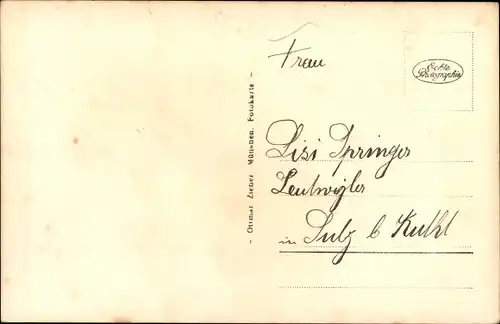 Frau
Echte
Photographie
Lisi Springer
in Sulz b
- Ottmar Zieher, München, Fotokarte -